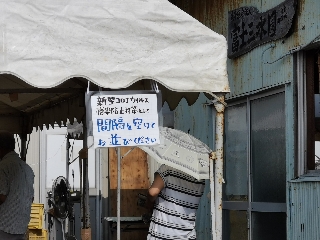 新型コロナウイルス
感染防止対策として
間隔を空けて
お並びください